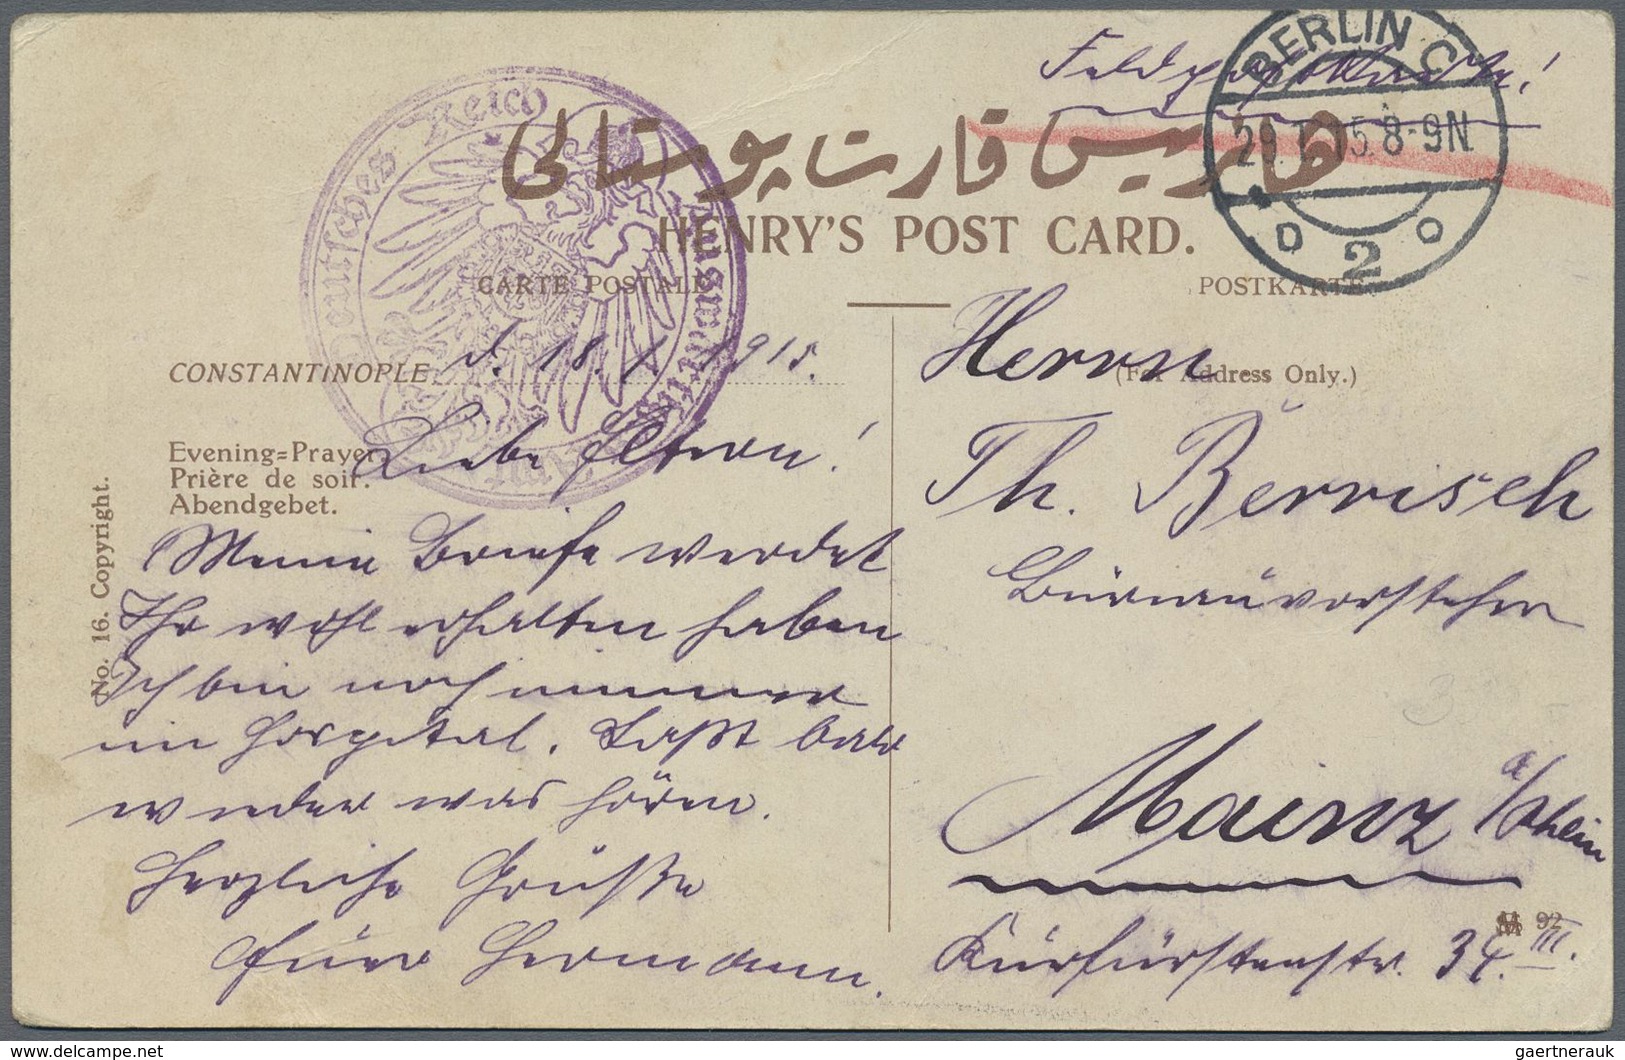 Feldpostkarte!
BERLIN C
29.1.15. 8-9N
* 2 o
Deutsches Reich
هانريس قارت پوستالى
HENRY'S POST CARD.
CARTE POSTALE
POSTKARTE
CONSTANTINOPLE, d. 18. 1. 1915.
Evening=Prayer.
Prière de soir.
Abendgebet.
No. 16. Copyright.
Liebe Eltern!
Meine Briefe werdet
Ihr wohl erhalten haben
Ich bin noch immer
im Hospital. Laßt bald
wieder was hören.
Herzliche Grüße
Euer Hermann.
Herrn
(For Address Only.)
Th. Berrisch
Bürauvorsteher
Mainz a/Rhein
92
Kurfürstenstr. 34 III.
www.delcampe.net
gaertnerauk